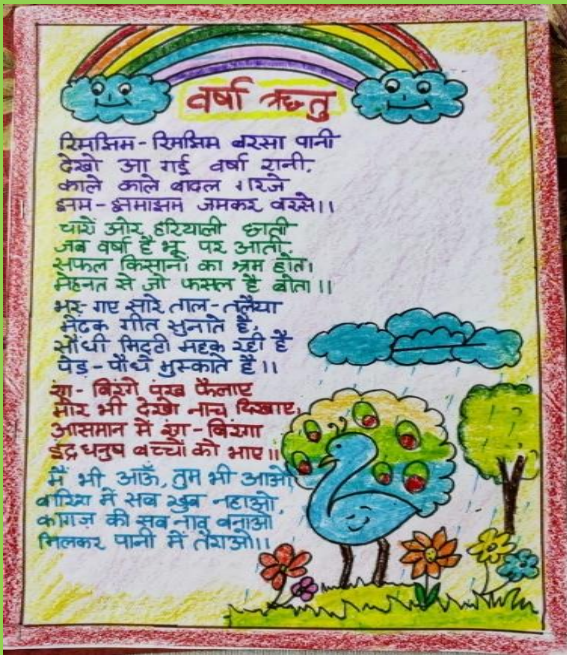 वर्षा ऋतु
रिमझिम-रिमझिम बरसा पानी
देखो आ गई वर्षा रानी,
काले काले बादल गरजे
झम-झमाझम जमकर बरसे।।
चारों ओर हरियाली छाती
जब वर्षा है भू पर आती,
सफल किसानों का श्रम होता
मेहनत से जो फसल है बोता।।
भर गए सारे ताल-तलैया
मेंढक गीत सुनाते हैं,
सौंधी मिट्टी महक रही है
पेड़-पौधे मुस्काते हैं।।
रंग-बिरंगे पंख फैलाए
मोर भी देखो नाच दिखाए,
आसमान में रंग-बिरंगा
इंद्रधनुष बच्चों को भाए।।
मैं भी आऊँ, तुम भी आओ
बारिश में सब खूब नहाओ,
कागज़ की सब नाव बनाओ
मिलकर पानी में तैराओ।।